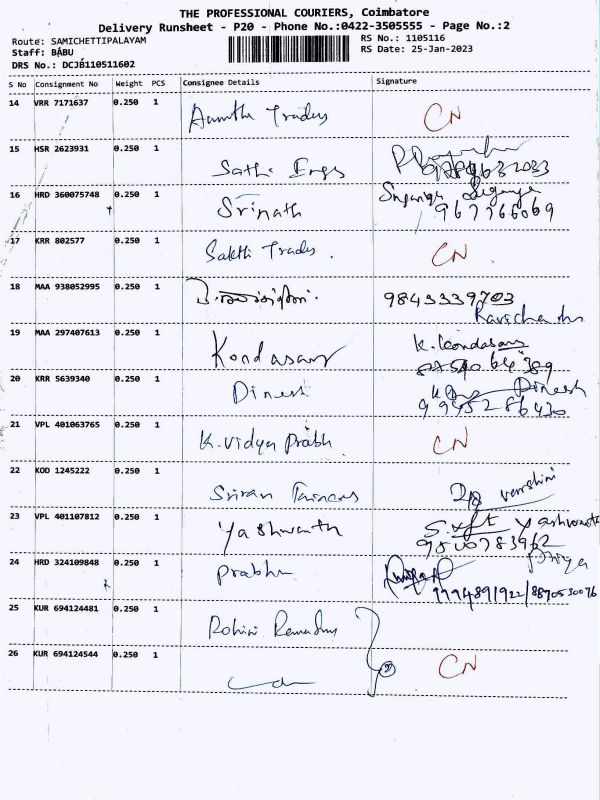 THE PROFESSIONAL COURIERS, Coimbatore
Delivery Runsheet - P20 - Phone No.:0422-3505555 - Page No.:2
Route: SAMICHETTIPALAYAM RS No.: 1105116
Staff: BABU RS Date: 25-Jan-2023
DRS No.: DCJB110511602
S No Consignment No Weight PCS Consignee Details Signature
14 VRR 7171637 0.250 1 Traders CN
15 HSR 2623931 0.250 1 Sathi Engs
16 HRD 360075748 0.250 1 Srinath
967766069
17 KRR 802577 0.250 1 Sakthi Traders. CN
18 MAA 938052995 0.250 1 9843339703
19 MAA 297407613 0.250 1 Kondasamy K. Kondasamy
20 KRR 5639340 0.250 1 Dinesh Dinesh
9945286430
21 VPL 401063765 0.250 1 K. Vidya Prabh CN
22 KOD 1245222 0.250 1 Sriram
23 VPL 401107812 0.250 1 Yashwanth
9500783962
24 HRD 324109848 0.250 1 Prabhu
9994891922/8870530076
25 KUR 694124481 0.250 1 Rohini
26 KUR 694124544 0.250 1 2 CN